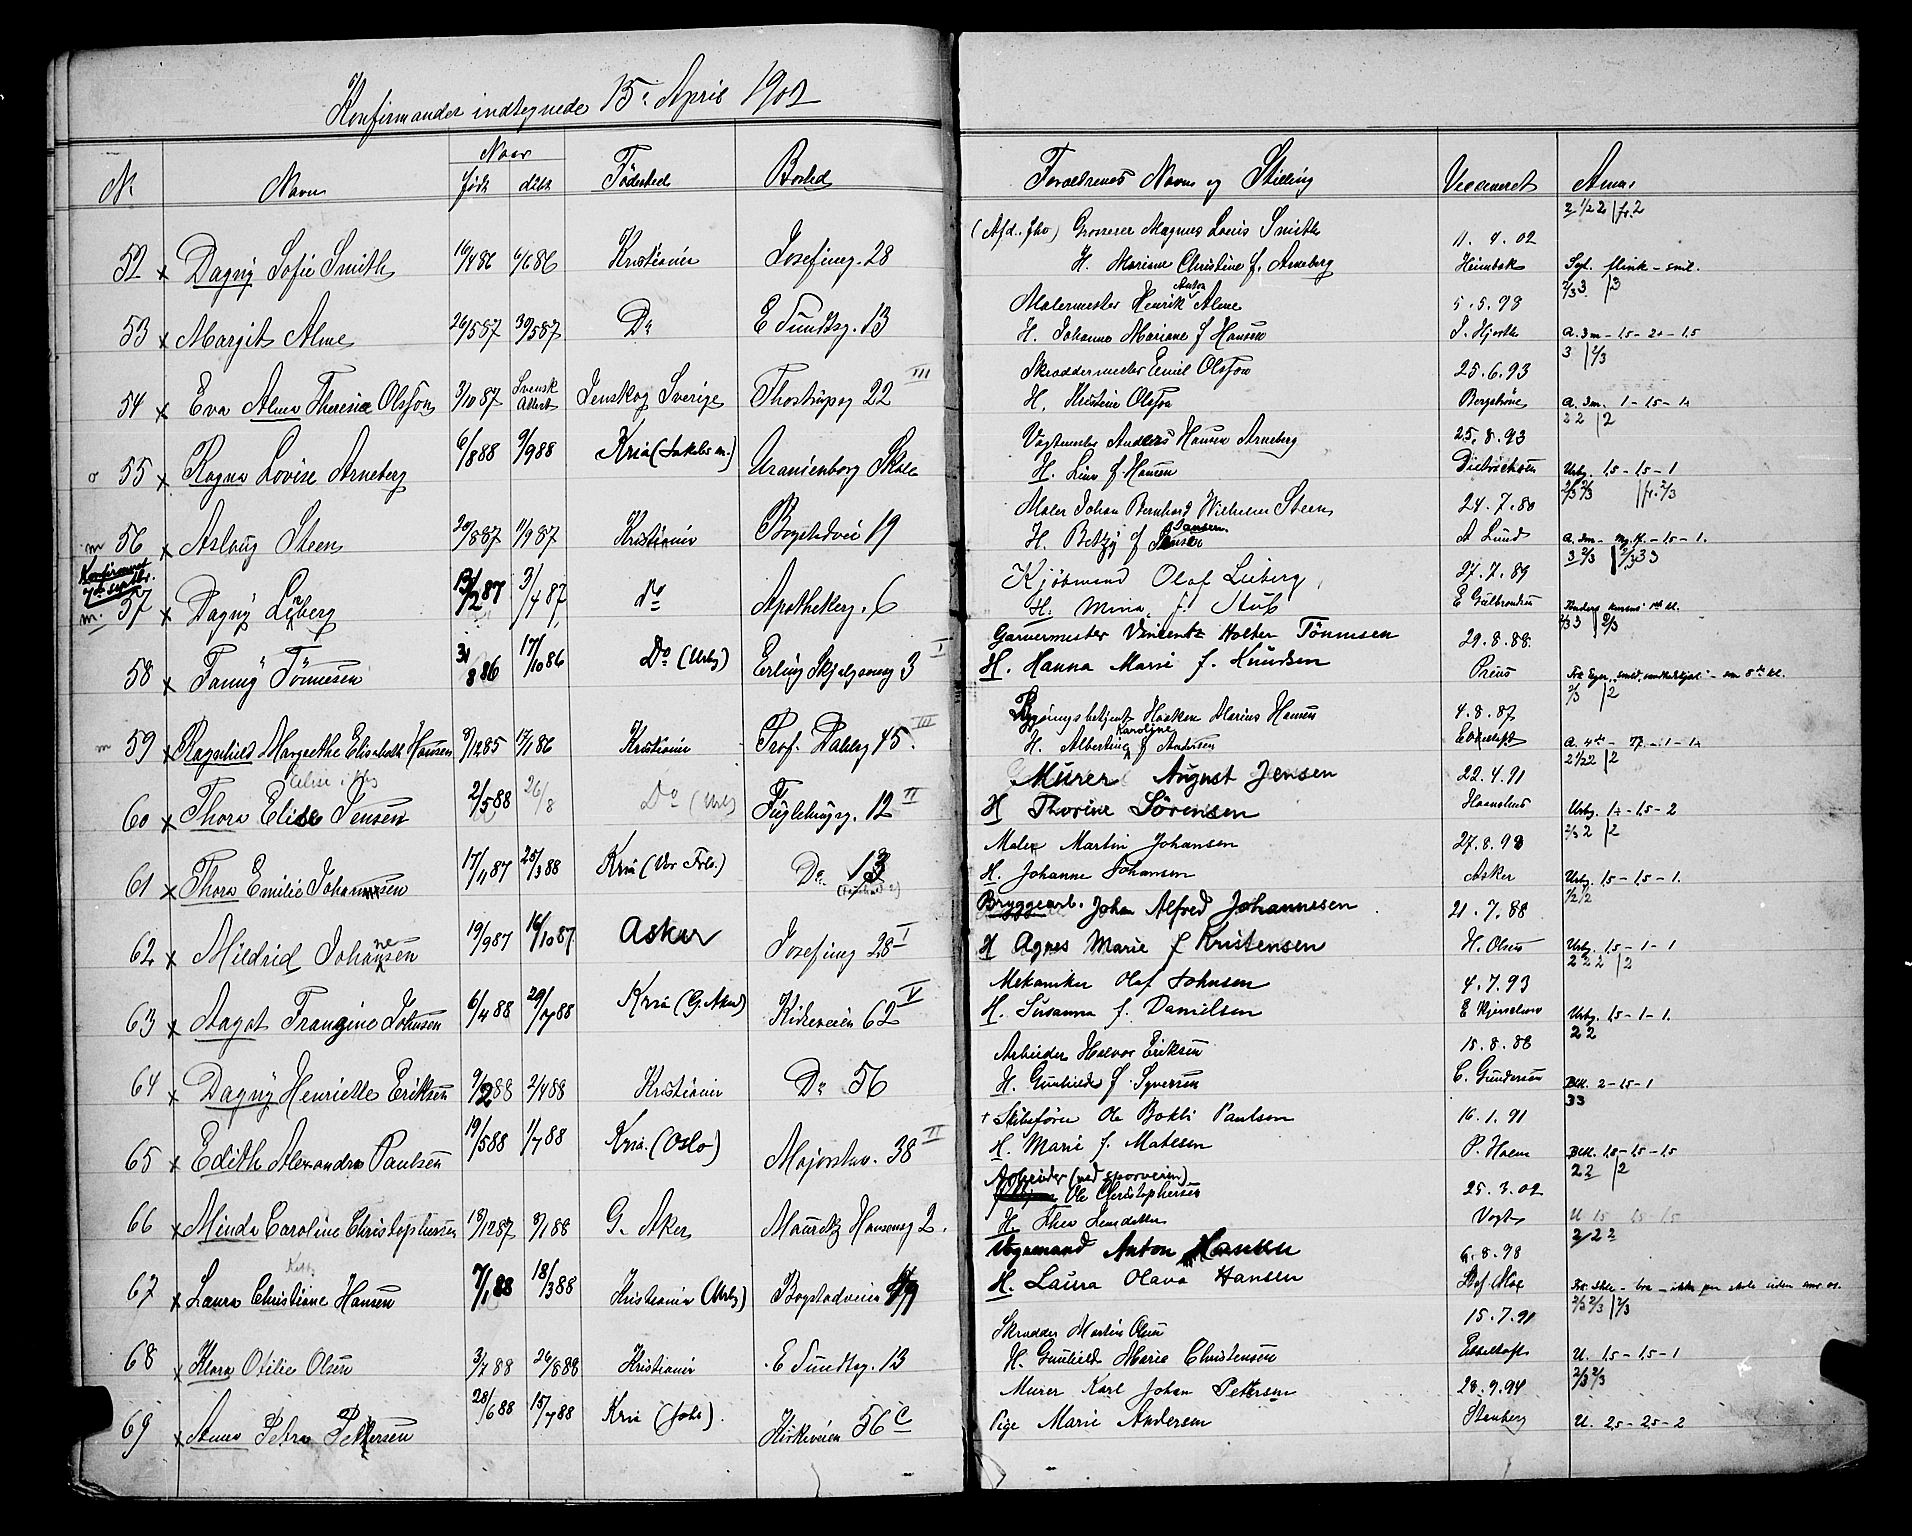 Konfirmander indtegnede 15. April 1902
Nr Navn Naar født døbt Fødested Bosted
52 x Dagny Sofie Smith 16/4 86 6/6 86 Kristiania Josefinesg. 28
53 x Margit Alme 26/5 87 30/5 87 Do E Sundtsg. 13
54 x Eva Alma Theresia Olsson 3/10 87 Svensk Attest Jenskog Sverige Thostrupsg 22 III
o 55 x Ragna Lovise Arneberg 6/8 88 9/9 88 Kria (Jakobs m.) Uranienborg Skole
m 56 x Aslaug Steen 20/8 87 11/9 87 Kristiania Bogstadvei 19
Konfirmeret 7de septbr.
m. 57 x Dagny Liberg 13/2 87 3/4 87 Do Apothekerg. 6
58 x Fanny Tønnesen 31/8 86 17/10 86 Do (Urbg) Erling Skjalgsonsg 3 I
m 59 x Ragnhild Margrethe Elisabeth Hansen 8/12 85 17/1 86 Kristiania Prof. Dahlsg 45. III
60 x Thora Elise Jensen 2/5 88 26/8 Do (Urbg) Fuglehaugg. 12 II
61 x Thora Emilie Johansen 17/4 87 25/3 88 Kria (Vor Frls.) Do 13
62 x Mildrid Johannesen 19/9 87 16/10 87 Asker Josefinesg 28 I
63 x Aagot Frangine Johnsen 6/4 88 29/7 88 Kria (G. Aker) Kirkeveien 62 V
64 x Dagny Henriette Eriksen 9/2 88 2/4 88 Kristiania Do 56
65 x Edith Alexandra Paulsen 19/5 88 1/7 88 Kria. (Oslo) Majorstuv. 38 II
66 x Minda Caroline Christophersen 18/12 87 8/1 88 G. Aker Mauritz Hansensg 2.
67 x Laura Christiane Hansen 7/1 88 18/3 88 Kristiania (Urbg) Bogstadveien 49
68 x Klara Otilie Olsen 3/7 88 26/8 88 Kristiania E Sundtsg. 13
69 x Anna Petra Pettersen 28/6 88 15/7 88 Kria (Johs). Kirkeveien 56 c
Forældrenes Navn og Stilling Vaccineret Anm.
2 1/2 2 | fr. 2
(Afd. fho) Grosserer Magnus Louis Smith 11. 4. 02
H. Mariane Christine f. Arneberg Heimbek Sgt. flink - snil.
Malermester Henrik Anton Alme 5. 5. 98
H. Johanne Mariane f Hansen J. Hjorth A. 3m - 1,5 - 2 - 1,5
3 | 2/3
Skræddermester Emil Olsson 25. 6. 93
H. Kristine Olsson Bergstrøm
2 2 | 2
Vagtmester Anders Hansen Arneberg 25. 8. 93
H. Lina f. Hansen Dietrichson Urbg. 1,5 - 1,5 - 1
Maler Johan Bernhard Wilhelm Steen 24. 7. 80
H. Betzy f Jansen A Lund
Kjøbmand Olaf Liberg 27. 7. 89
H. Mina f. Stub E Gulbrandsen
Garvermester Vincentz Holter Tønnesen 29. 8. 88.
H. Hanna Marie f. Knudsen Preus
2/3 | 2
Bygningsbetjent Haaken Marius Hansen 4. 8. 87
H. Albertine Karoline f Andersen
2 1/2 2 | 2
Murer August Jensen 22. 4. 91
H Thorine Sørensen Urbg. 1,5 - 2
Maler Martin Johansen 27. 8. 93
H. Johanne Johansen Asker Urbg. 1,5 - 1,5 - 1.
Bryggearb. Johan Alfred Johannessen 21. 7. 88
H Agnes Marie f Kristensen H. Olsen Urbg. 1,5 - 1 - 1
2 2 2 | 2
Mekaniker Olaf Johnsen 4. 7. 93
H. Susanna f. Danielsen Urbg. 1,5 - 1 - 1.
2 2
Arbeider Halvor Eriksen 15. 8. 88
H. Gunhilde f. Syversen C. Gundersen Bkl. 2 - 1,5 - 1
33
+ Skibsfører Ole Bakli Paulsen 16. 1. 91
H. Marie f. Matesen P. Holm Bkl. 1,5 - 1,5 - 1,5
2 2 | 2
Arbeider (ved sporveien)
Ole Christophersen 25. 3. 02
H. Thea Vogt U 1,5 1,5 - 1,5
Vognmand Anton Hansen 6. 8. 98
H. Laura Olava Hansen
2/3 2/3 | 2/3
Skrædder Martin Olsen 15. 7. 91
H. Gunhild Marie Christensen U. 1,5 - 1,5 - 1
2/3 2/3
Murer Karl Johan Pettersen 28. 9. 94
Pige Marie Andersen Stenberg U. 2,5 - 2,5 - 2